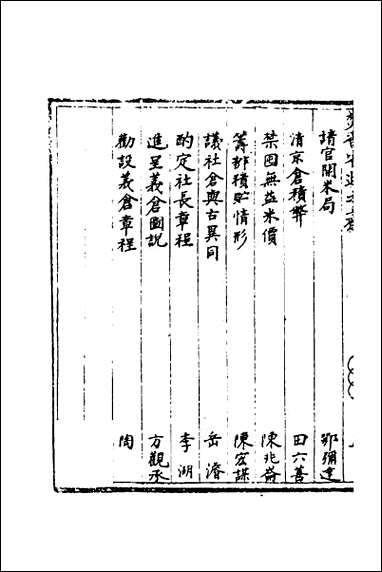 請官開米局 鄂彌達
清京倉積弊 田六善
禁囤無益米價 陳兆崙
籌部積貯情形 陳宏謀
議社倉與古異同 岳濬
酌定社長章程 李湖
進呈義倉圖說 方觀承
勸設義倉章程 陶